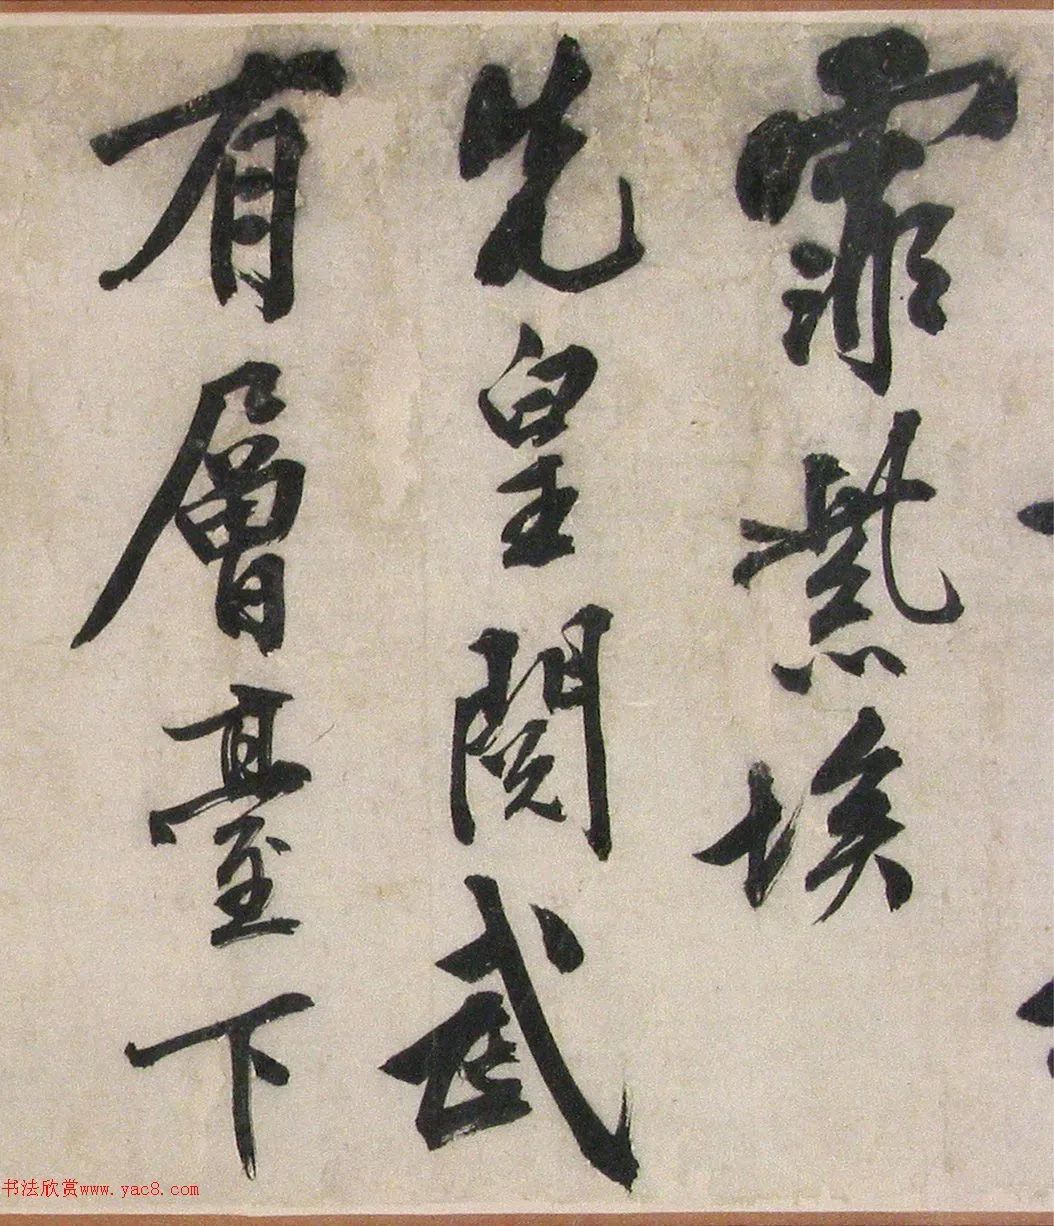 霏紫埃
先皇閱武
有層臺下
书法欣赏www.yac8.com